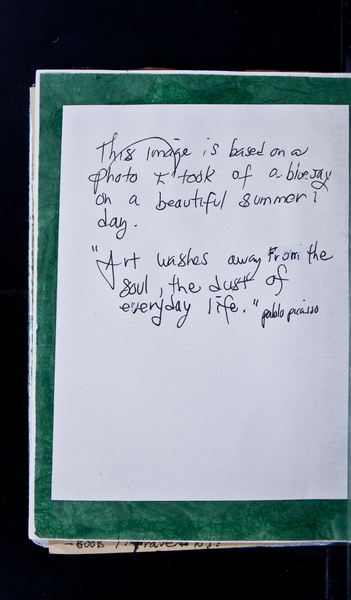 This image is based on a
photo I took of a bluejay
on a beautiful summer
day.
"Art washes away from the
soul, the dust of
everyday life." pablo picasso